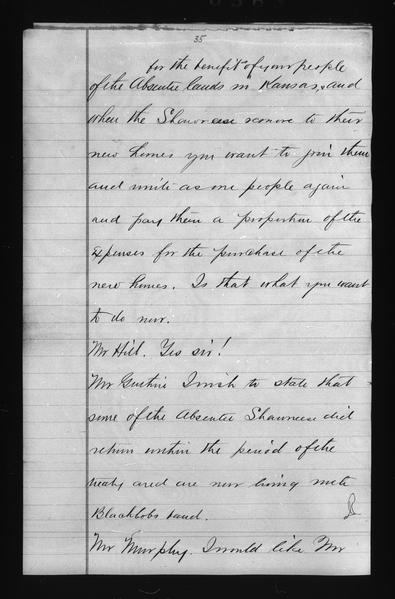 35
for the benefit of your people
of the Absentee lands in Kansas, and
when the Shawnese remove to their
new homes you want to join them
and unite as one people again
and pay them a proportion of the
expenses for the purchase of the
new homes. Is that what you want
to do now.
Mr Hill. Yes sir!
Mr I wish to state that
some of the Absentee Shawnese did
return within the period of the
treaty and are now living with
Blackbobs band.
Mr Murphy. I would like Mr